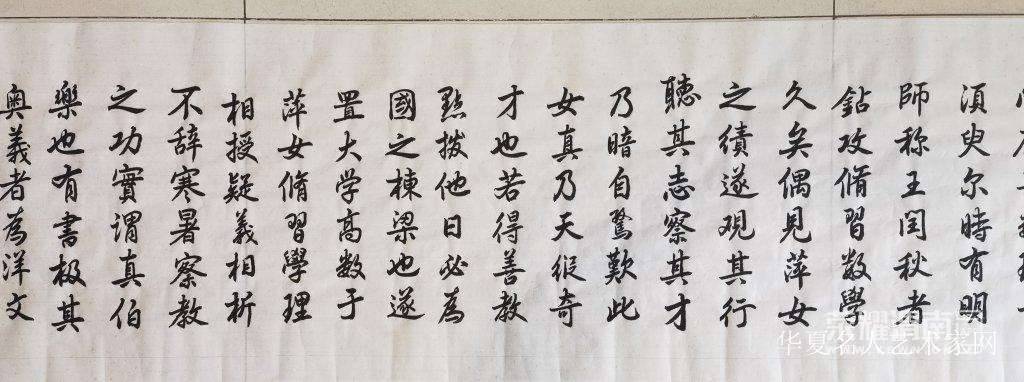 須臾尔時有明
師称王闰秋者
鉆攻脩習数學
久矣偶見萍女
之績遂观其行
聽其志察其才
乃暗自驚歎此
女真乃天縱奇
才也若得善教
點拨他日必為
國之棟梁也遂
置大学高数于
萍女脩習學理
相授疑義相析
不辞寒暑察教
之功實謂真伯
樂也有書极其
奥義者為洋文
华夏名人艺术家网